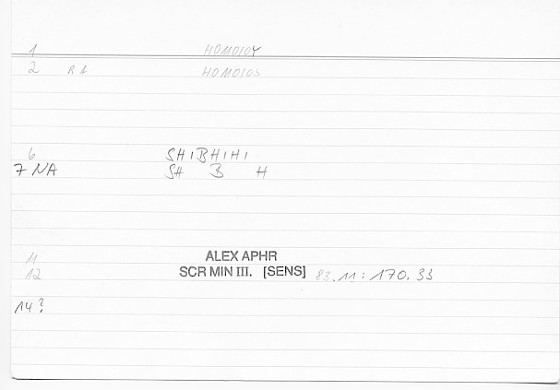 1 HOMOIOY
2 R1 HOMOIOS
6 SHIBHIHI
7 NA SH B H
11 ALEX APHR
12 SCR MIN III. [SENS] 83.11:170.33
14?